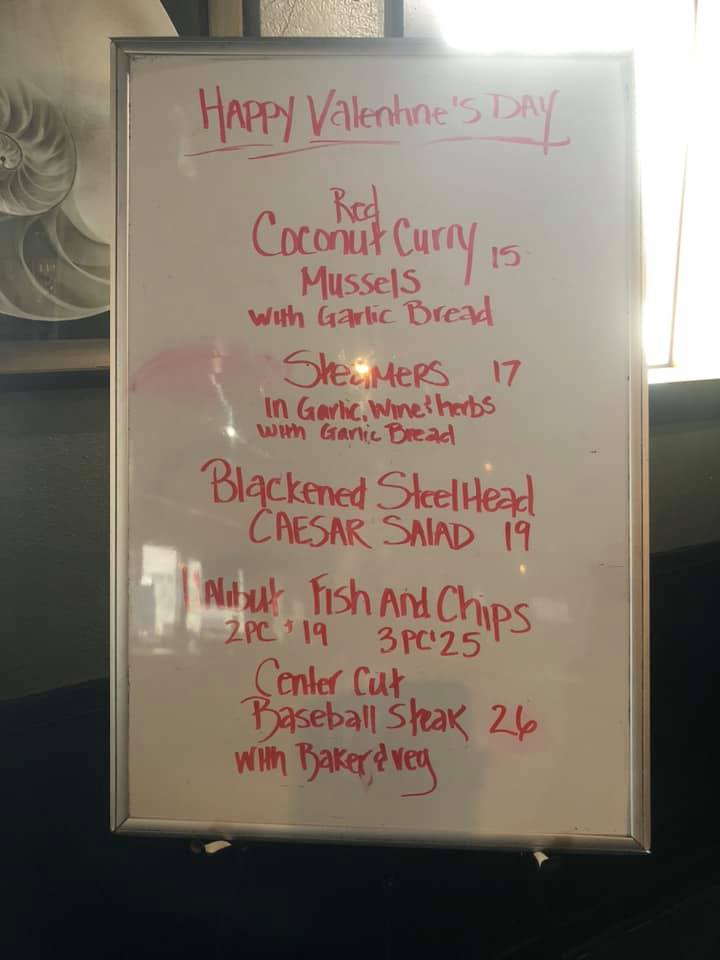 HAPPY Valentine's DAY
Red
Coconut Curry 15
Mussels
with Garlic Bread
Steamers 17
In Garlic, Wine & herbs
with Garlic Bread
Blackened SteelHead
CAESAR SALAD 19
Halibut Fish And Chips
2PC $19 3PC $25
Center Cut
Baseball Steak 26
with Baker & veg